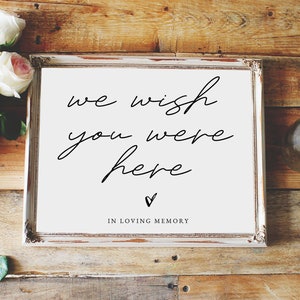 we wish
you were
here
IN LOVING MEMORY